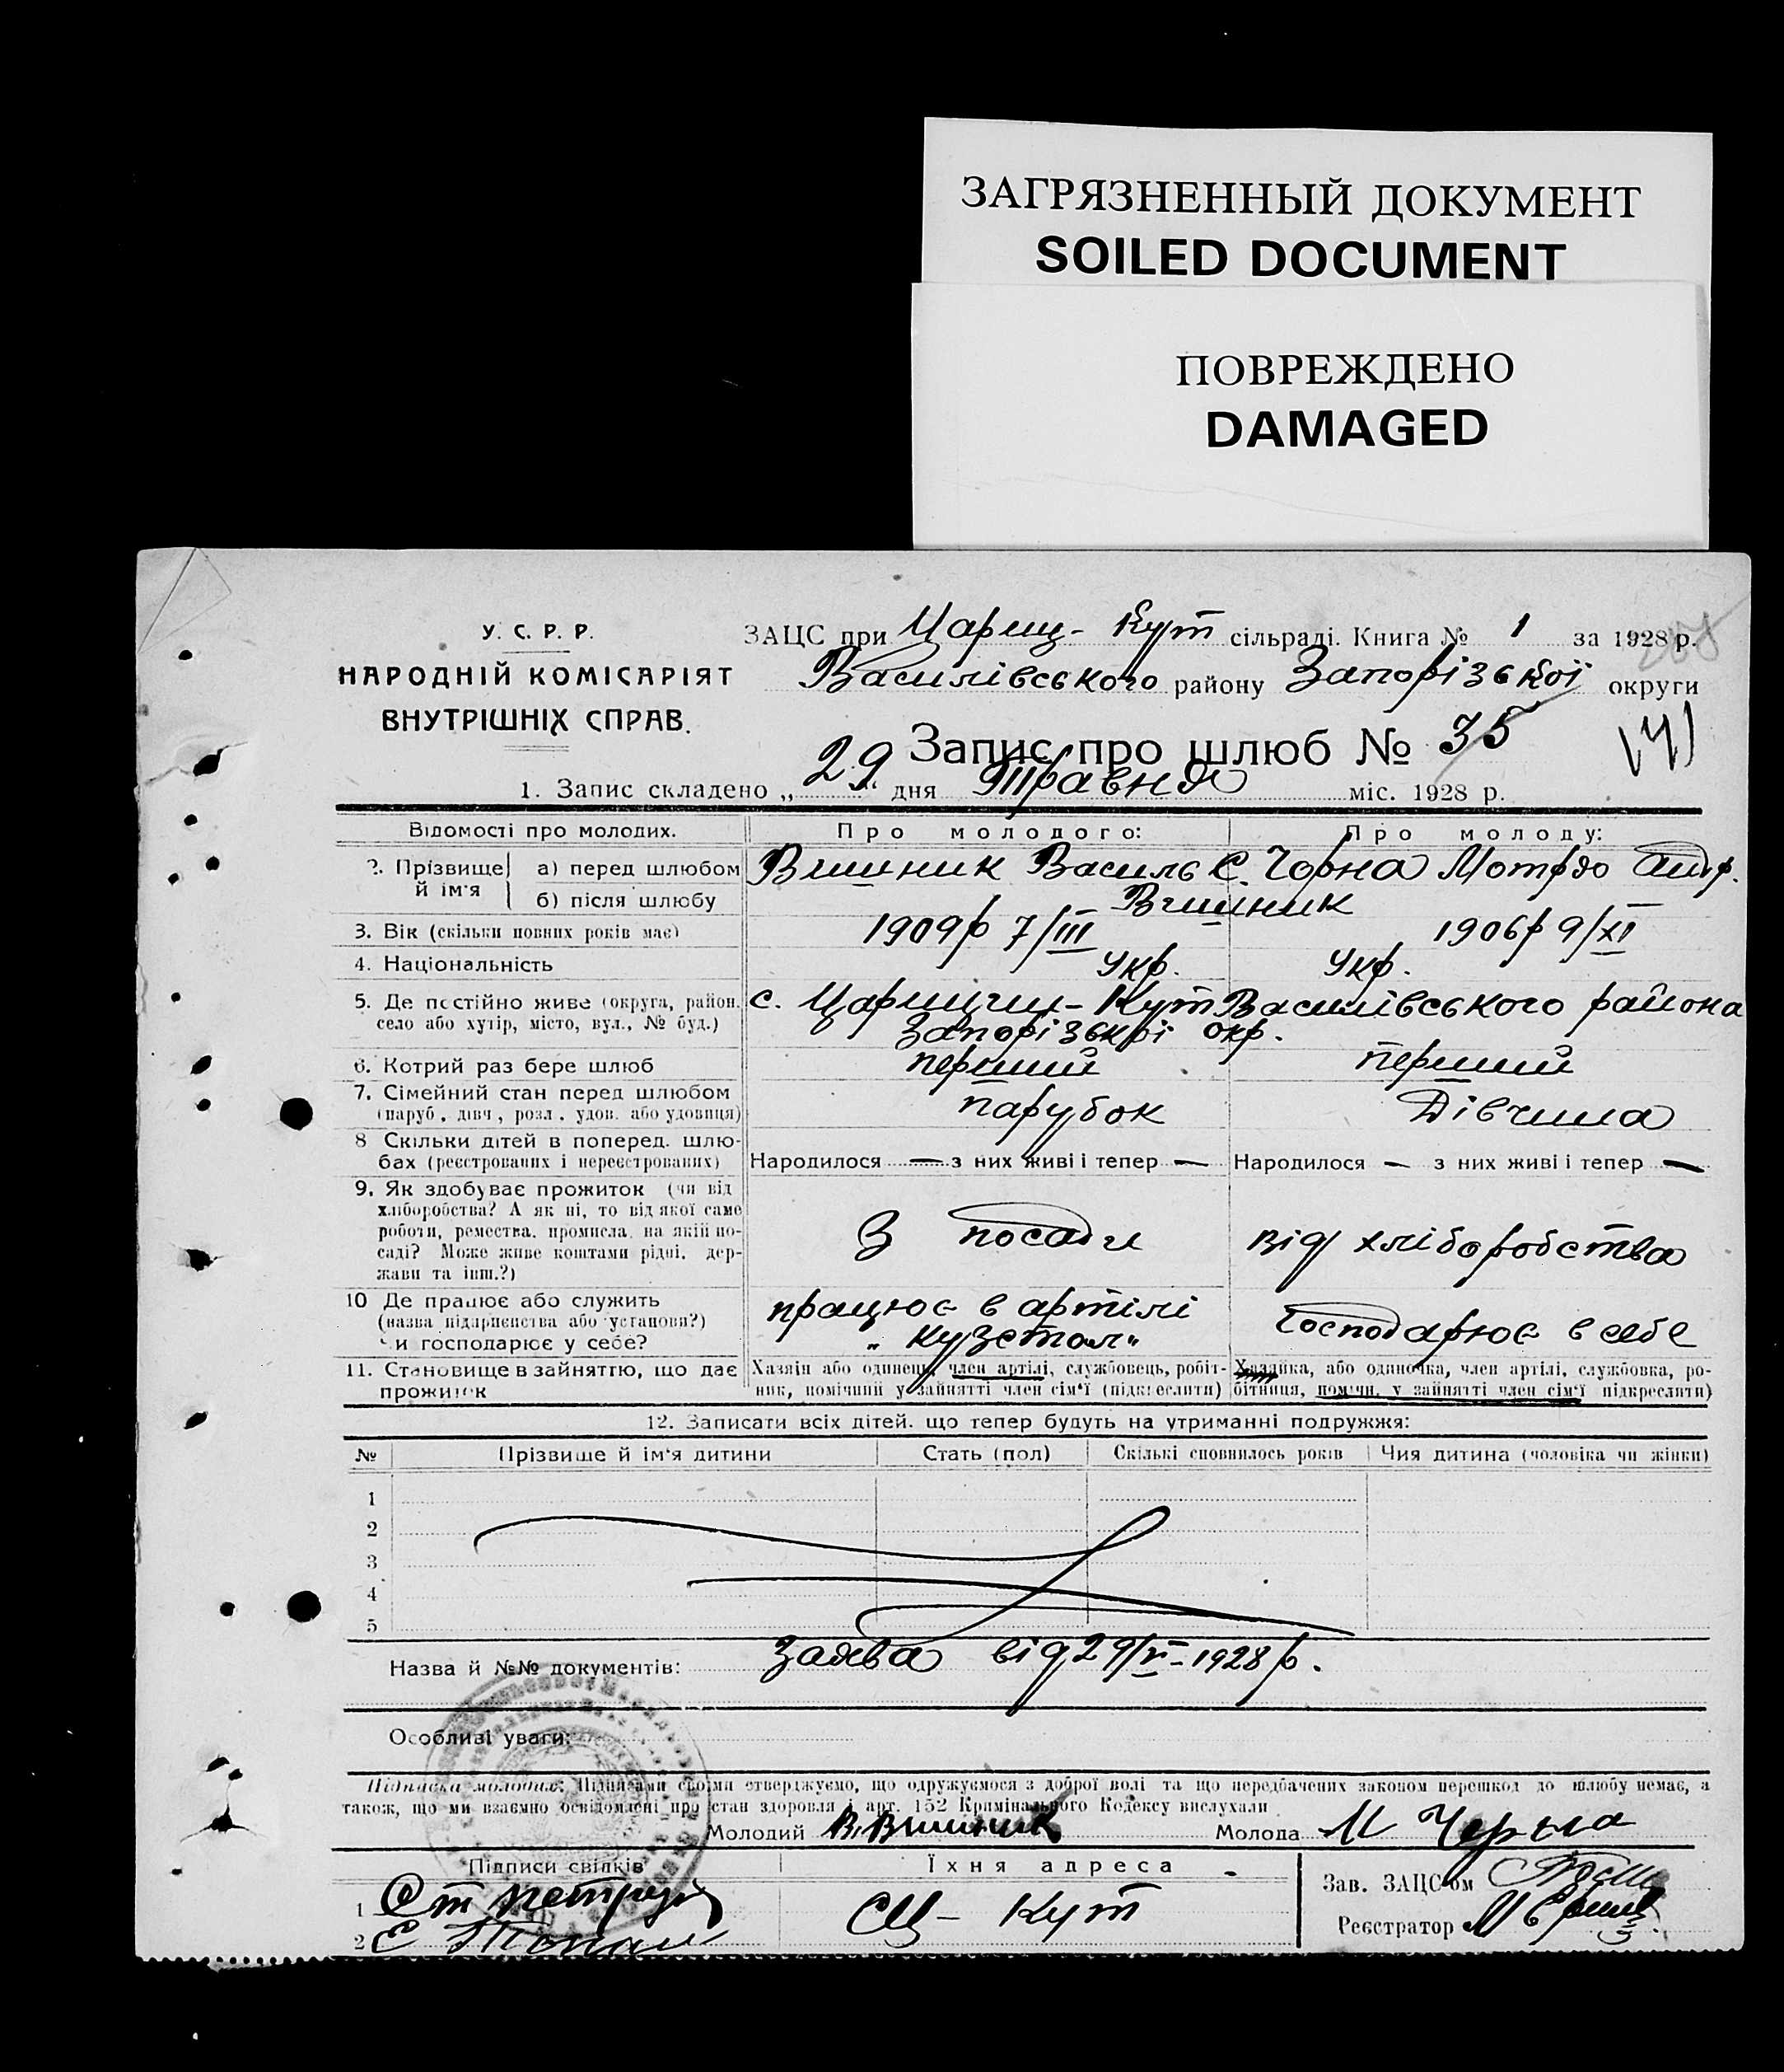 ЗАГРЯЗНЕННЫЙ ДОКУМЕНТ
SOILED DOCUMENT
ПОВРЕЖДЕНО
DAMAGED
У. С. Р. Р.
НАРОДНІЙ КОМІСАРІЯТ
ВНУТРІШНІХ СПРАВ.
ЗАЦС при Цариц- Кут сільраді. Книга № 1 за 1928 р.
Василівського району Запорізької округи
Запис про шлюб № 35
1. Запис складено „ 29 " дня Травня міс. 1928 р.
Відомості про молодих. Про молодого: Про молоду:
2. Прізвище й ім'я а) перед шлюбом Вишник Василь С. Чорна Мотря Андр.
б) після шлюбу Вишник
3. Вік (скільки повних років має) 1909р 7/III 1906р 9/XI
4. Національність Укр. Укр.
5. Де постійно живе (округа, район, с. Царицин-Кут Василівського района
село або хутір, місто, вул., № буд.) Запорізької окр.
6. Котрий раз бере шлюб перший перший
7. Сімейний стан перед шлюбом
(паруб., дівч., розл., удов. або удовиця) парубок Дівчина
8 Скільки дітей в поперед. шлю-
бах (реєстрованих і нереєстрованих) Народилося — з них живі і тепер — Народилося — з них живі і тепер —
9. Як здобуває прожиток (чи від
хліборобства? А як ні, то від якої саме
роботи, ремества, промисла, на якій по- З посади від хліборобства
саді? Може живе коштами рідні, дер-
жави та інш.?)
10 Де працює або служить працює в артілі
(назва підприємства або установи?) „Кузстол" Господарює в себе
чи господарює у себе?
11. Становище в зайняттю, що дає Хазяїн або одинець, член артілі, службовець, робіт- Хазяйка, або одиночка, член артілі, службовка, ро-
прожиток ник, помічний у зайнятті член сім'ї (підкреслити) бітниця, помічн. у зайнятті член сім'ї підкреслити)
12. Записати всіх дітей, що тепер будуть на утриманні подружжя:
№ Прізвище й ім'я дитини Стать (пол) Скількі сповнилось років Чия дитина (чоловіка чи жінки)
1
2
3
4
5
Назва й №№ документів: Заява від 29/VI-1928 р.
Особливі уваги:
Підписка молодих: Підписами своїми стверджуємо, що одружуємося з доброї волі та що передбачених законом перешкод до шлюбу немає, а
також, що ми взаємно освідомлені про стан здоровля і арт. 152 Кримінального Кодексу вислухали
Молодий В. Вишник Молода М Черна
Підписи свідків Їхня адреса Зав. ЗАЦС'ом
1
2 Е СЦ- Кут Реєстратор